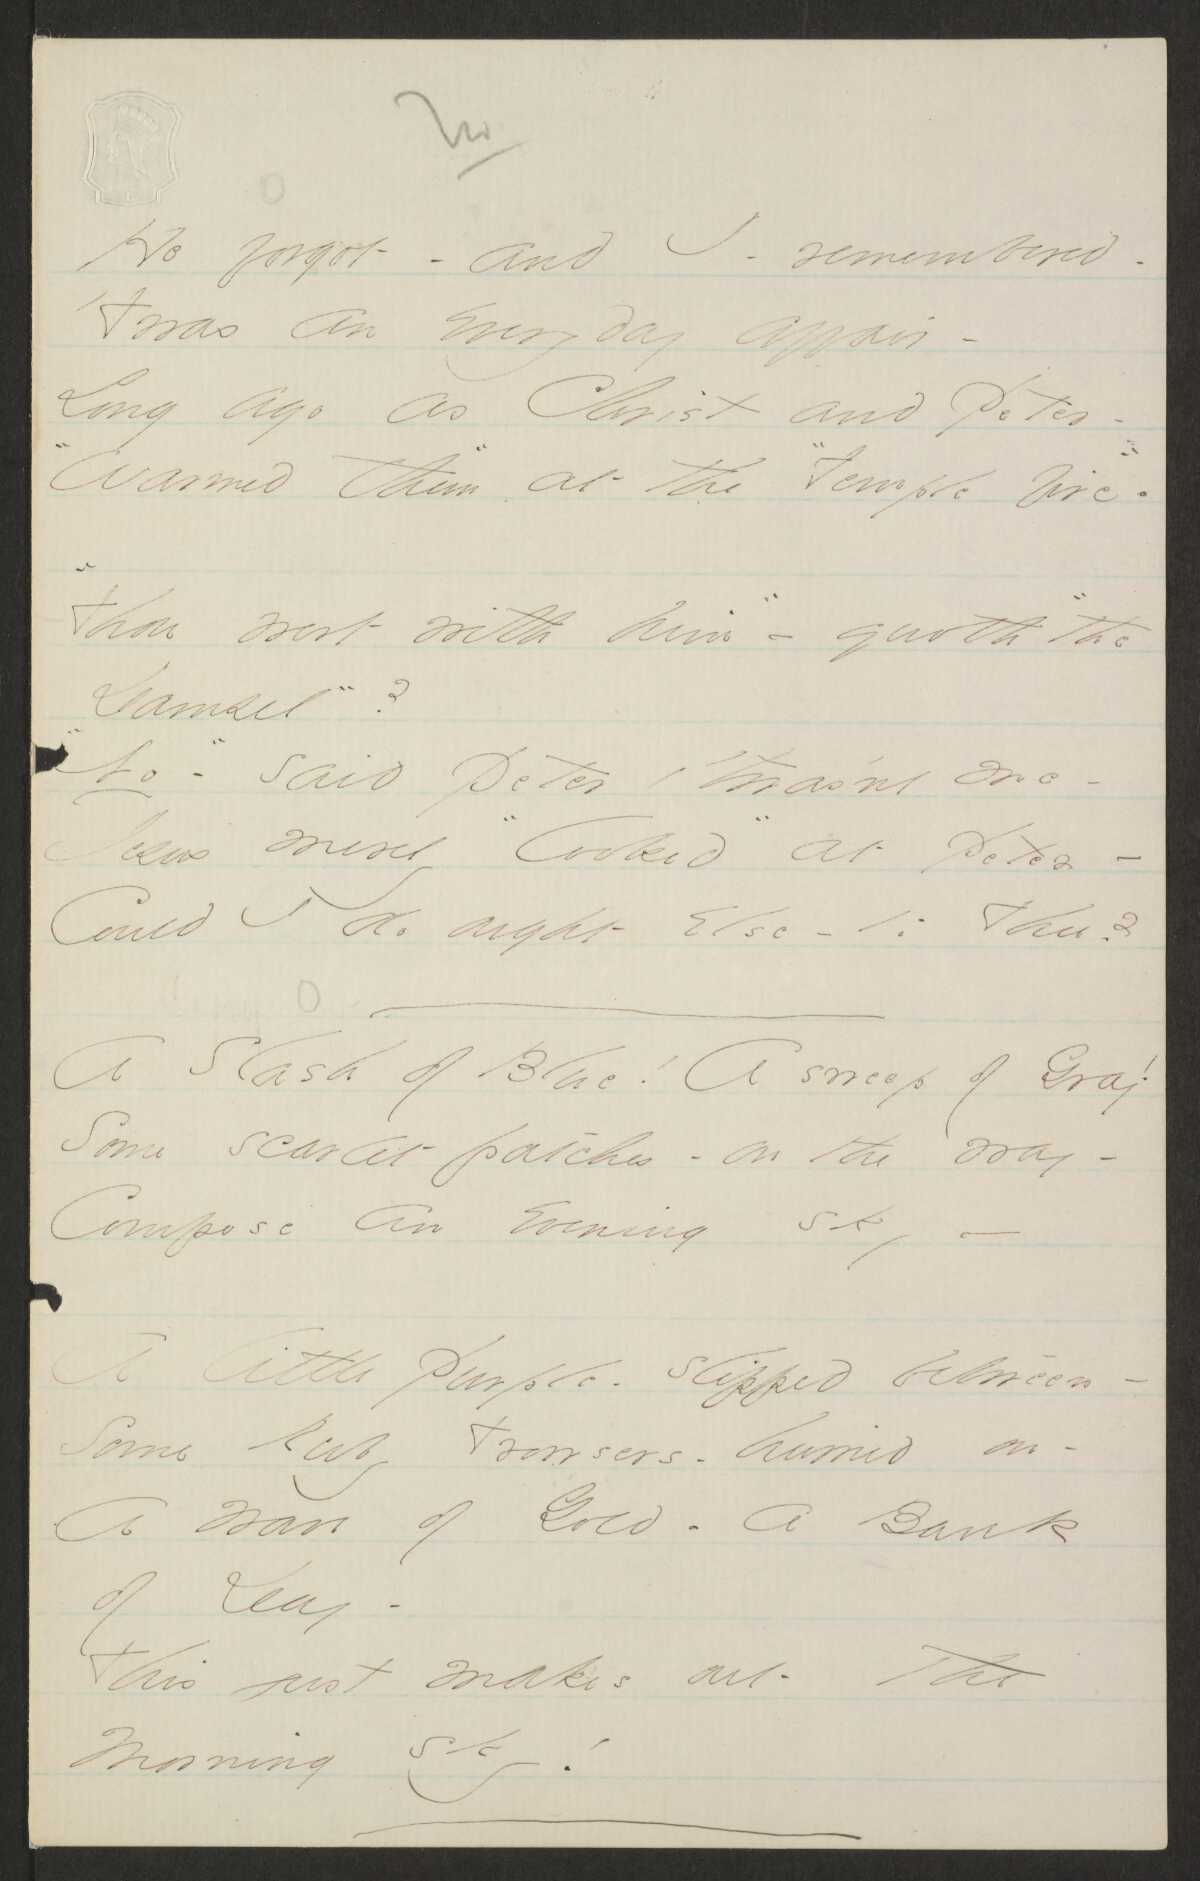 No
He forgot - and I - remembered -
'Twas an Everyday affair -
Long ago as Christ and Peter -
"Warmed them" at the "Temple fire".
"Thou wert with him" - quoth "the
Damsel"?
"No" - said Peter, 'twas'nt me -
Jesus merely "looked" at Peter -
Could I do aught Else - to Thee?
A Slash of Blue! A sweep of Gray!
Some scarlet patches - on the way -
Compose an Evening sky -
A little Purple - slipped between -
Some Ruby Trowsers - hurried on -
A Wave of Gold - A Bank
of Day -
This just makes out the
Morning sky!